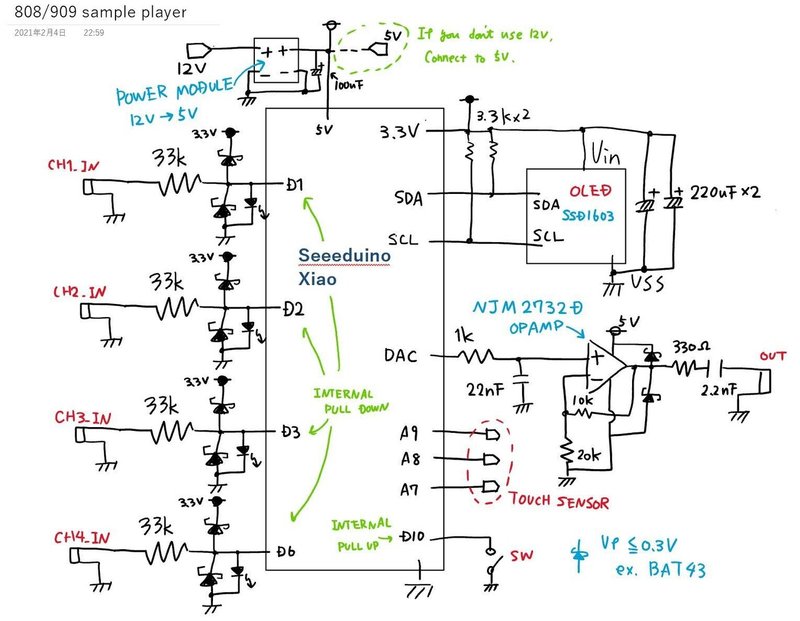 808/909 sample player
2021年2月4日 22:59
12V
+ +
- -
5V
If you don't use 12V,
Connect to 5V.
POWER MODULE
12V → 5V
+
100uF
5V
3.3V
3.3k×2
3.3V
CH1_IN
33k
D1
Vin
OLED
SSD1603
SDA
SDA
SCL
SCL
+
+
220uF×2
VSS
Seeeduino
Xiao
3.3V
CH2_IN
33k
D2
NJM2732D
OPAMP
5V
DAC
1k
22nF
+
-
10k
20k
330Ω
2.2nF
OUT
INTERNAL
PULL DOWN
3.3V
CH3_IN
33k
D3
A9
A8
A7
TOUCH SENSOR
3.3V
CH4_IN
33k
D6
INTERNAL
PULL UP
D10
SW
VF ≦ 0.3V
ex. BAT43